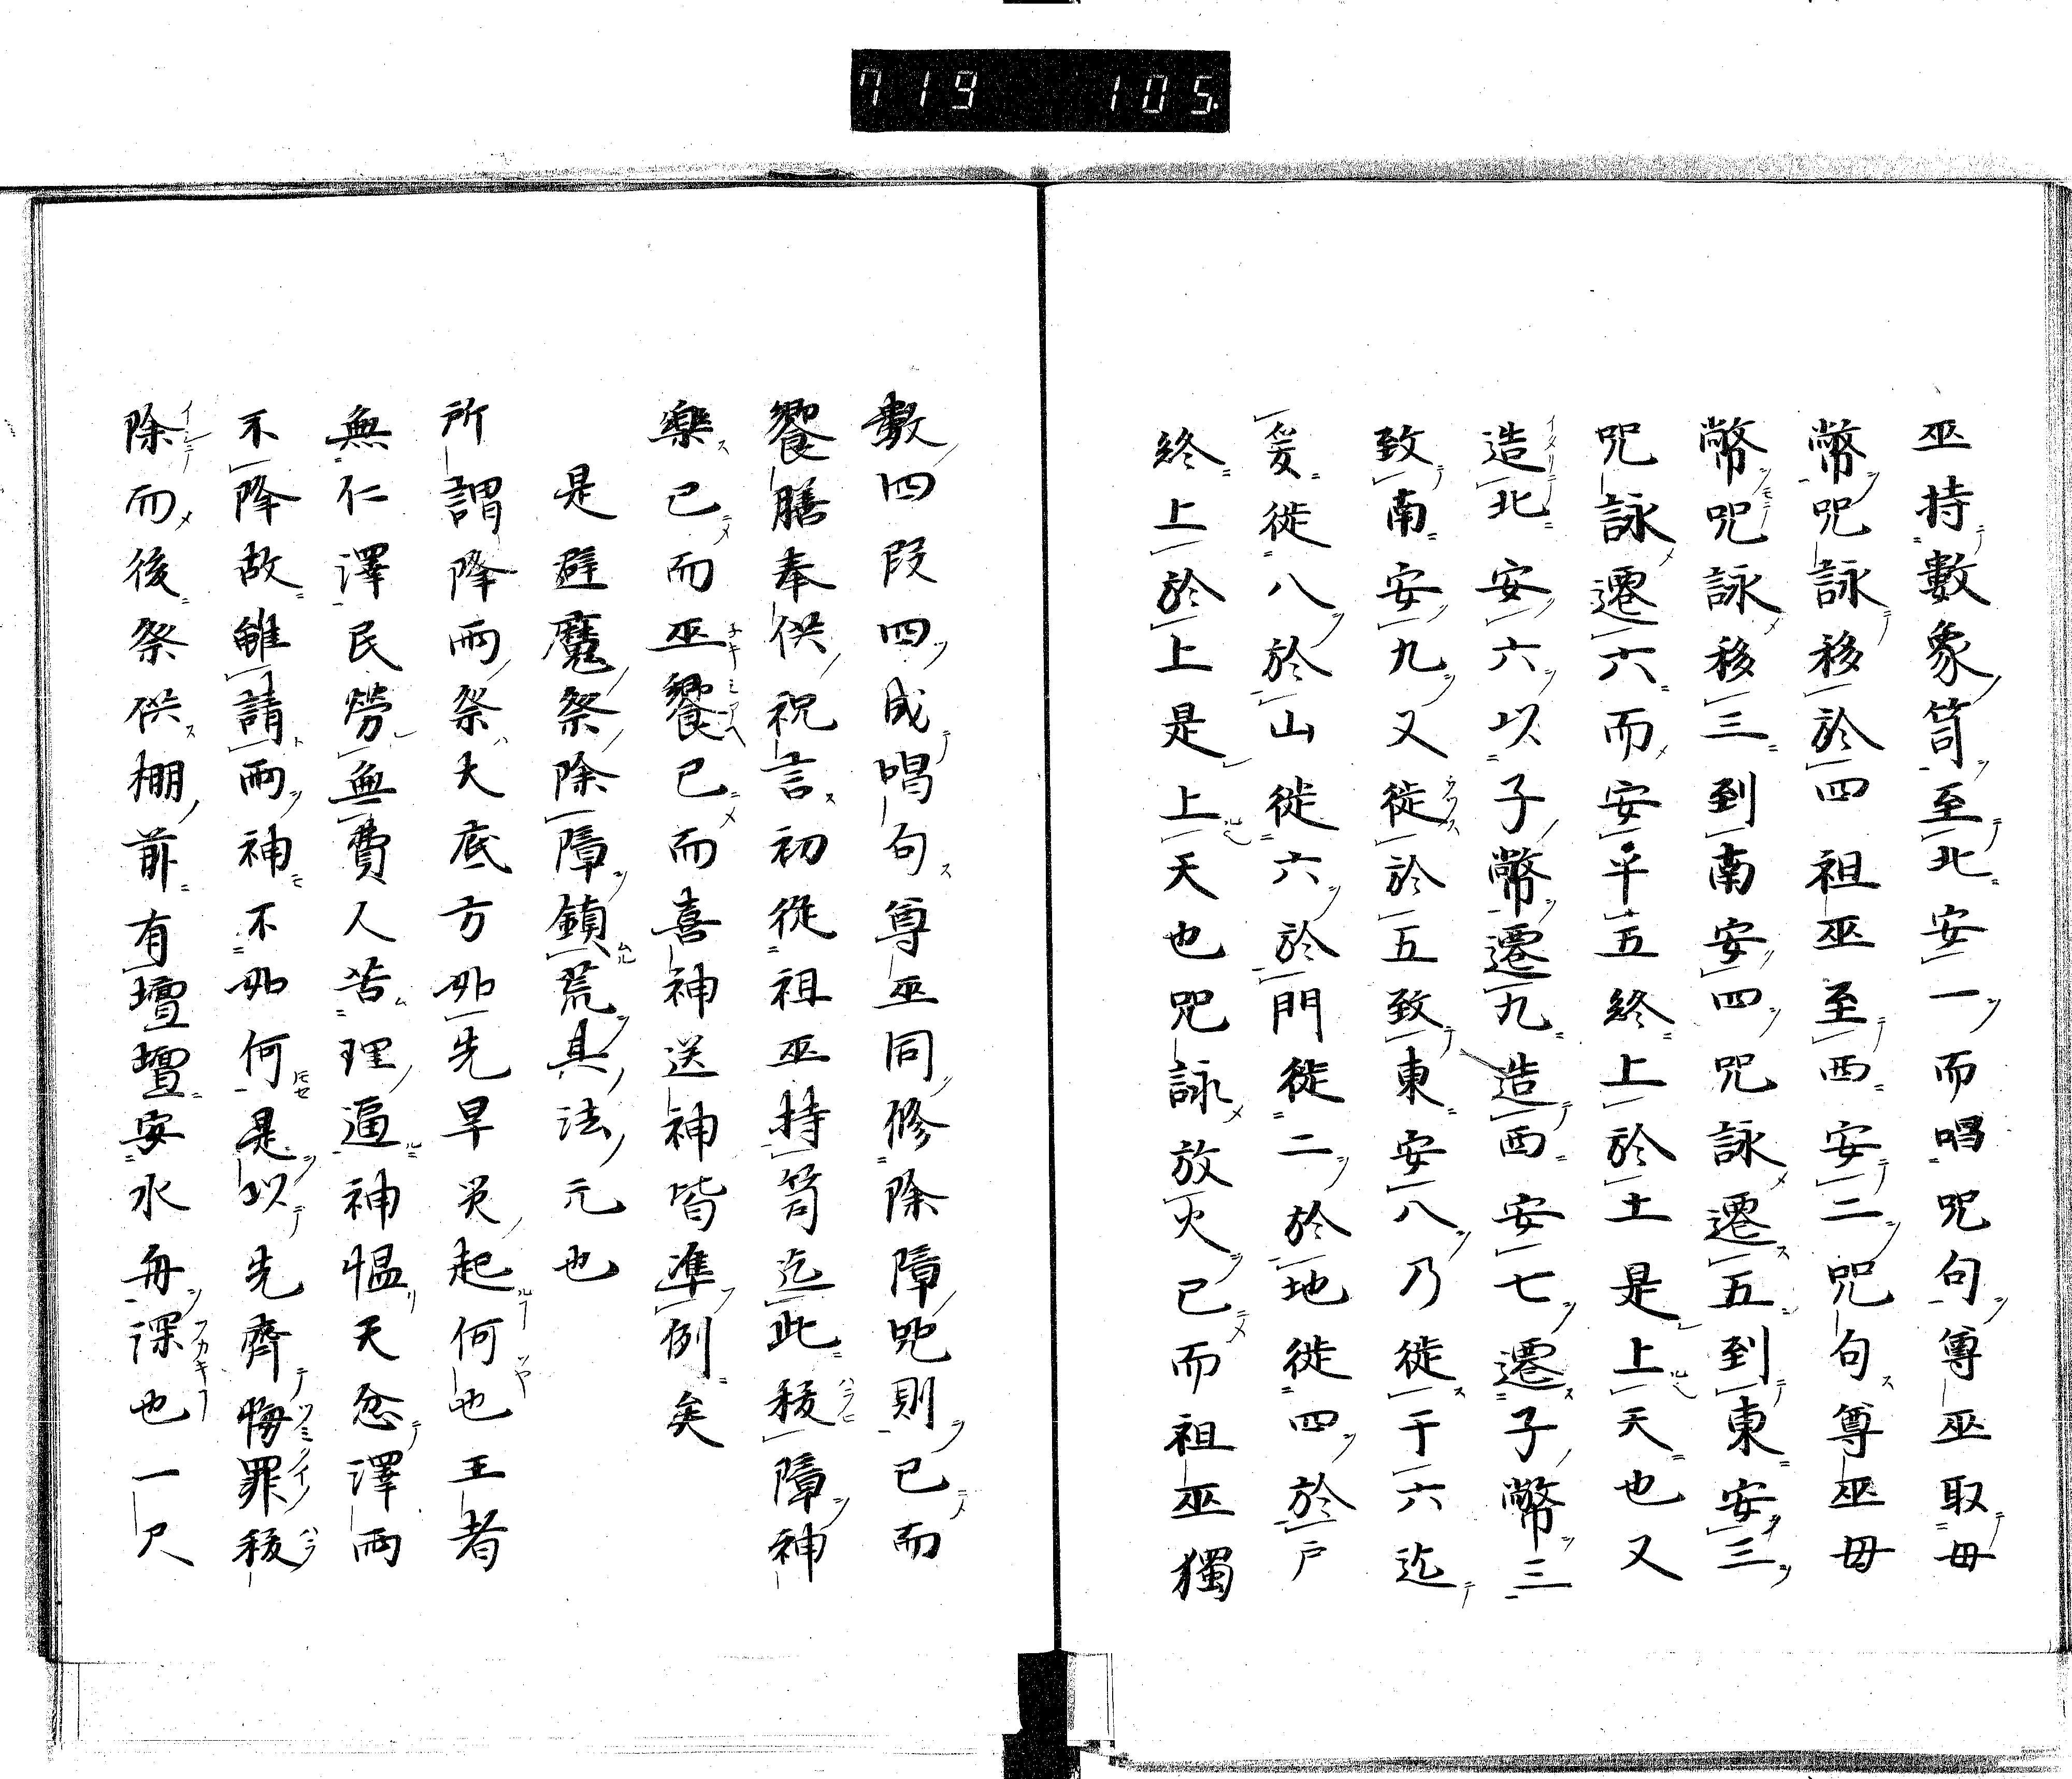 719 105
巫持數象笥至北安一而唱咒句尊巫取毋
幣咒詠移於四祖巫至西安二咒句尊巫毋
幣咒詠移三到南安四咒詠遷五到東安三
咒詠遷六而安平五終上於土是上天也又
造北安六以子幣遷九造西安七遷子幣三
致南安九又徙於五致東安八乃徙于六迄
爰徙八於山徙六於門徙二於地徙四於戸
終上於上是上天也咒詠放火已而祖巫獨
數四段四成唱句尊巫同修除障咒則已而
饗膳奉供祝言初從祖巫持笥迄此祓障神
樂已而巫饗已而喜神送神皆準例矣
是避魔祭除障鎮荒具法元也
所謂降雨祭大底方如先旱災起何也王者
無仁澤民勞無費人苦理逼神慍天忿澤雨
不降故雖請雨神不如何是以先齊悔罪祓
除而後祭供棚前有壇壇安水舟深也一尺